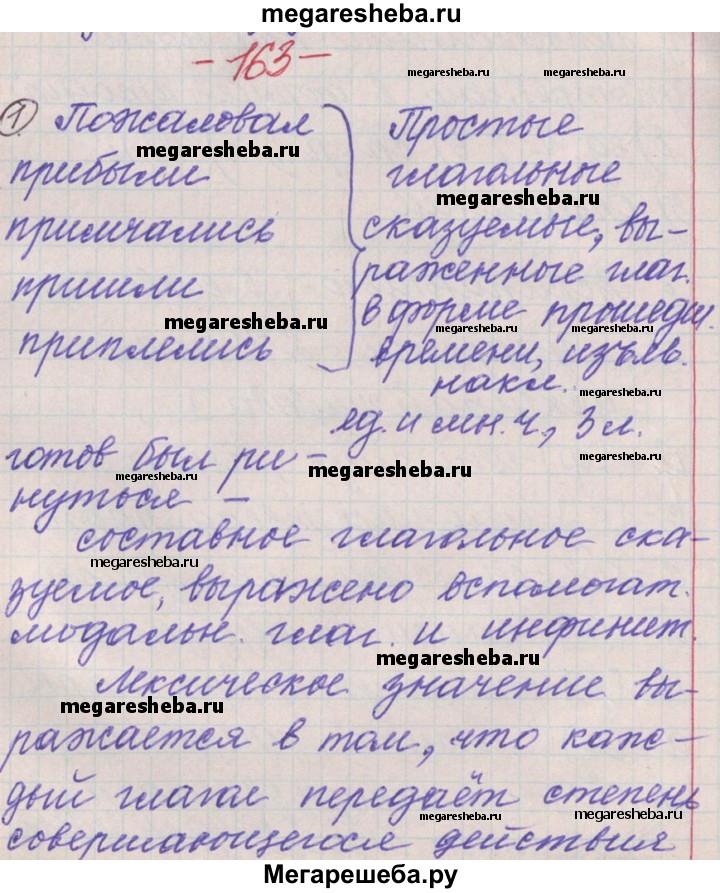 megaresheba.ru
- 163 -
megaresheba.ru
1) Пожаловал
megaresheba.ru
прибыли
примчались
пришли
megaresheba.ru
приплелись
Простые
глагольные
megaresheba.ru
сказуемые, вы-
megaresheba.ru
раженные глаг.
в форме прошедш.
megaresheba.ru megaresheba.ru
времени, изъяв.
накл.
megaresheba.ru
ед. и мн. ч., 3 л.
готов был ри-
megaresheba.ru
megaresheba.ru
megaresheba.ru
нуться -
составное глагольное ска-
megaresheba.ru
зуемое, выражено вспомогат.
модальн. глаг. и инфинит.
megaresheba.ru
Лексическое значение вы-
megaresheba.ru
ражается в том, что каж-
дый глагол передаёт степень
megaresheba.ru megaresheba.ru
совершающегося действия
Мегарешеба.ру